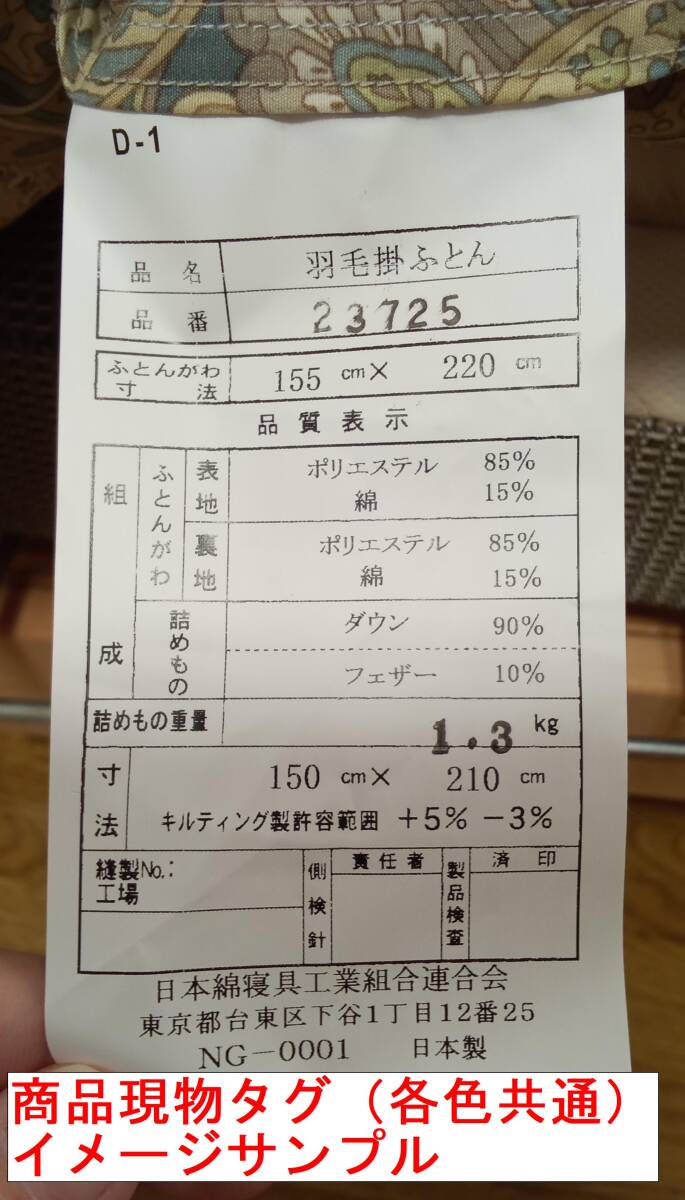 D-1
品名 羽毛掛ふとん
品番 23725
ふとんがわ寸法 155 cm× 220 cm
品質表示
組成 ふとんがわ 表地 ポリエステル 85%
綿 15%
裏地 ポリエステル 85%
綿 15%
詰めもの ダウン 90%
フェザー 10%
詰めもの重量 1.3 kg
寸法 150 cm× 210 cm
キルティング製許容範囲 +5% -3%
縫製No.:
工場
側検針 責任者 製品検査 済印
日本綿寝具工業組合連合会
東京都台東区下谷1丁目12番25
NG-0001 日本製
商品現物タグ（各色共通）
イメージサンプル